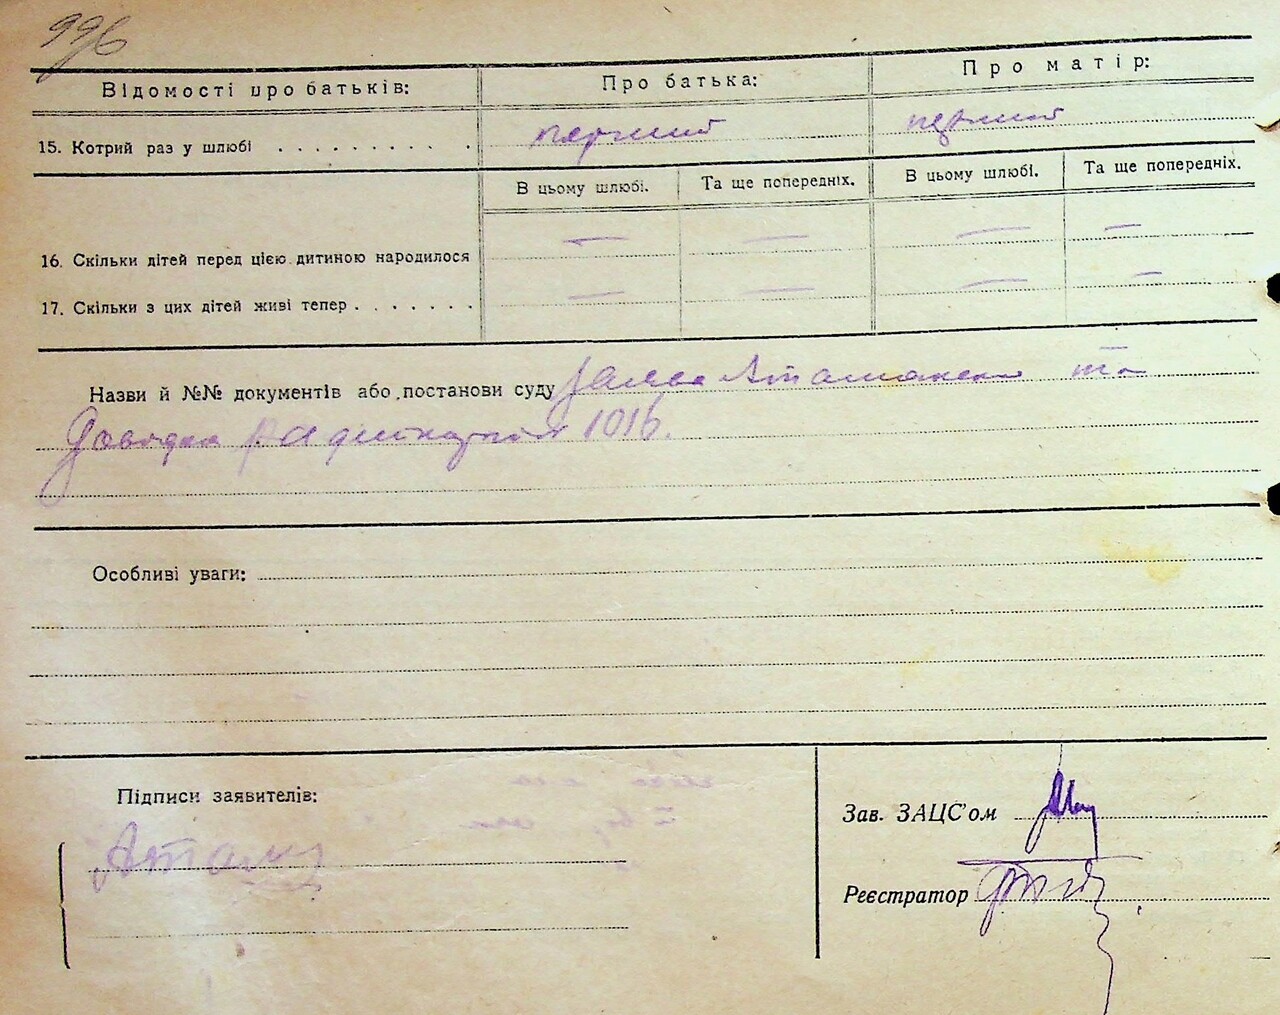 996
Відомості про батьків: Про батька: Про матір:
15. Котрий раз у шлюбі . . . . . . . . . . перший перший
В цьому шлюбі. Та ще попередніх. В цьому шлюбі. Та ще попередніх.
16. Скільки дітей перед цією дитиною народилося — — — —
17. Скільки з цих дітей живі тепер . . . . . . . — — — —
Назви й №№ документів або постанови суду Заява Атаманенко та
Довідка 1016.
Особливі уваги:
Підписи заявителів:
Зав. ЗАЦС'ом
Реєстратор